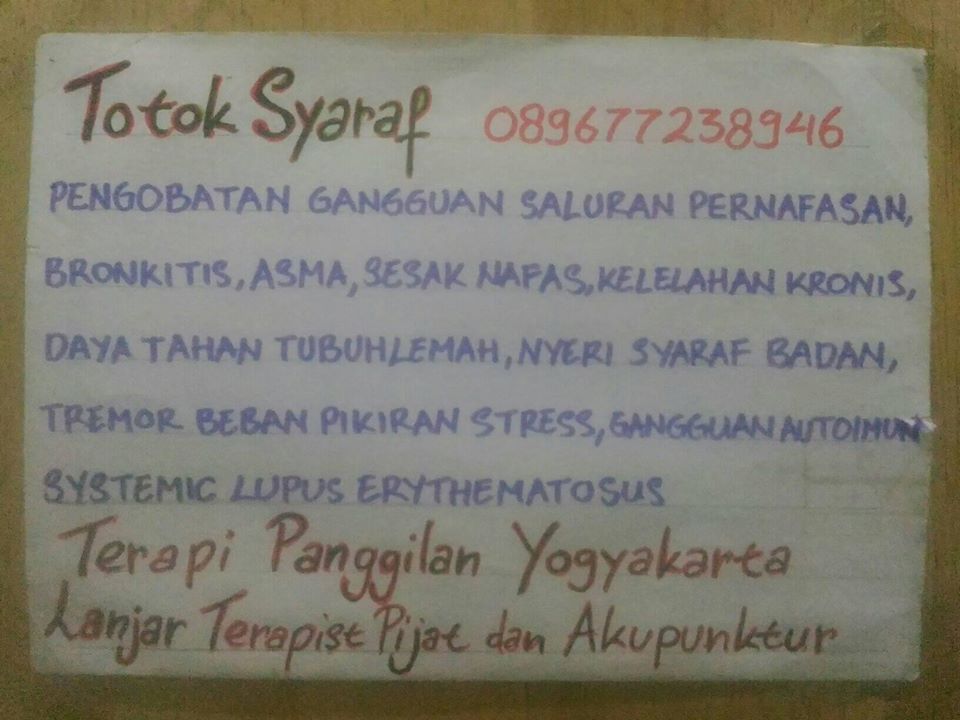 Totok Syaraf 089677238946
PENGOBATAN GANGGUAN SALURAN PERNAFASAN,
BRONKITIS, ASMA, SESAK NAFAS, KELELAHAN KRONIS,
DAYA TAHAN TUBUH LEMAH, NYERI SYARAF BADAN,
TREMOR BEBAN PIKIRAN STRESS, GANGGUAN AUTOIMUN
SYSTEMIC LUPUS ERYTHEMATOSUS
Terapi Panggilan Yogyakarta
Lanjar Terapist Pijat dan Akupunktur